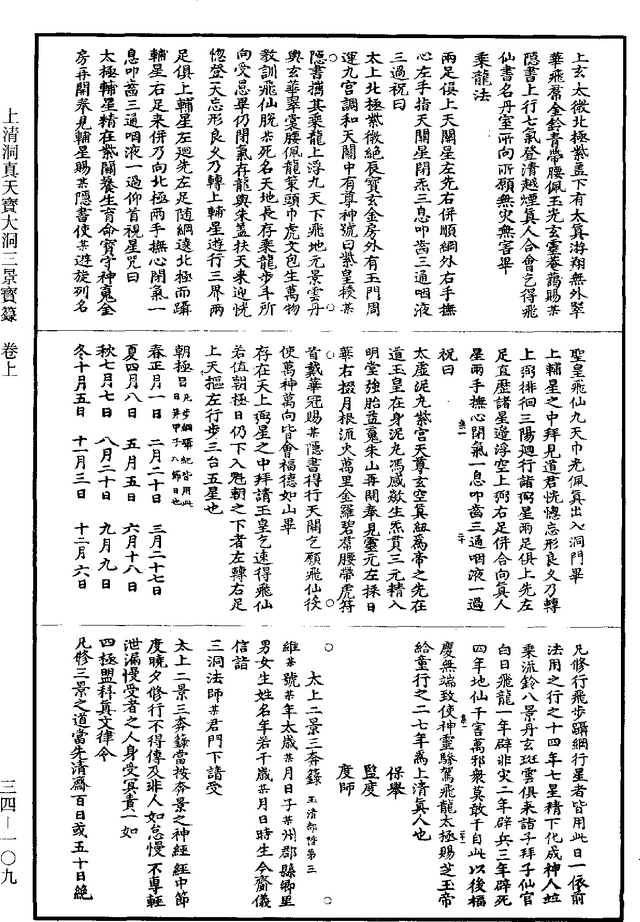 上清洞真天寶大洞三景寶籙　卷上
三四—一〇九
上玄太微北極紫蓋下有太真游翔無外翠
華飛帬金鈴青帶腰佩玉光玄靈菴藹賜某
隱書上行七氣登清越煙真人合會乞得飛
仙書名丹室所向所願無灾無害畢
乘龍法
兩足俱上天關星左先右併順綱外右手撫
心左手指天關星閉炁三息叩齒三通咽液
三過祝曰
太上北極紫微絕辰寶玄金房外有玉門周
運九宮調和天關中有尊神號曰紫皇授某
隱書攜某乘龍上浮九天下飛地元景雲丹
輿玄華翠裳腰佩龍策頭巾虎文包生萬物
教訓飛仙脫某死名天地長存乘龍步斗所
向受恩畢仍閉氣存龍輿朱蓋扶天來迎恍
惚登天忘形良久乃轉上輔星遊行三界兩
足俱上輔星左廻先左足隨綱遶北極而躡
輔星右足來併乃向北極兩手撫心閉氣一
息叩齒三通咽液一過仰首視星咒曰
太極輔星精在紫關養生育命寶守神鬼金
房再開奉見輔星賜某隱書使某遊旋列名
聖皇飛仙九天巾光佩真出入洞門畢
上輔星之中拜見道君恍惚忘形良久乃轉
上弼徘徊三陽廻行諸弼星兩足俱上先左
足直歷諸星遶浮空上弼右足併合向真人
星兩手撫心閉氣一息叩齒三通咽液一過
祝曰
太虛泥丸紫宮天尊玄空算紐爲帝之先在
道玉皇在身泥丸馮感歘生炁貫三元精入
明堂強胎益鬼朱山再開奉見靈元左採日
華右掇月根流火萬里金羅碧帬腰帶虎符
首戴華冠賜某隱書得行天關乞願飛仙役
使萬神萬向皆會福德如山畢
存在天上弼星之中拜請玉皇乞速得飛仙
若值朝極日仍下入魁朝之下者左轉右足
上天樞左行步三台五星也
朝極日凡步綱躡紀皆用此日第甲子八節日也
春正月一日　二月二十日　三月二十七
夏四月八日　五月五日　六月十八日
秋七月七日　八月二十日　九月九日
冬十月五日　十一月三日　十二月六日
凡修行飛步躡綱行星者皆用此日一依前
法用之行之十四年七星精下化成神人竝
乘流鈴八景丹玄斑雲俱來詣子拜子仙官
白日飛龍一年辟非灾二年辟兵三年辟死
四年地仙千害萬邪衆莫敢干自此以後福
慶無端致使神靈驂駕飛龍太極賜芝玉帝
給童行之二七年爲上清真人也
保舉
監度
度師
太上二景三奔籙　玉清部階第三
維某號某年太歲某月日子某州郡縣鄉里
男女生姓名年若干歲某月日時生今齎儀
信詣
三洞法師某君門下請受
太上二景三奔籙當按奔景之神經經中節
度曉夕修行不得傳及非人如怠慢不專輕
泄漏慢受者之人身受冥責一如
四極盟科真文律令
凡修三景之道當先清齋百日或五十日絶